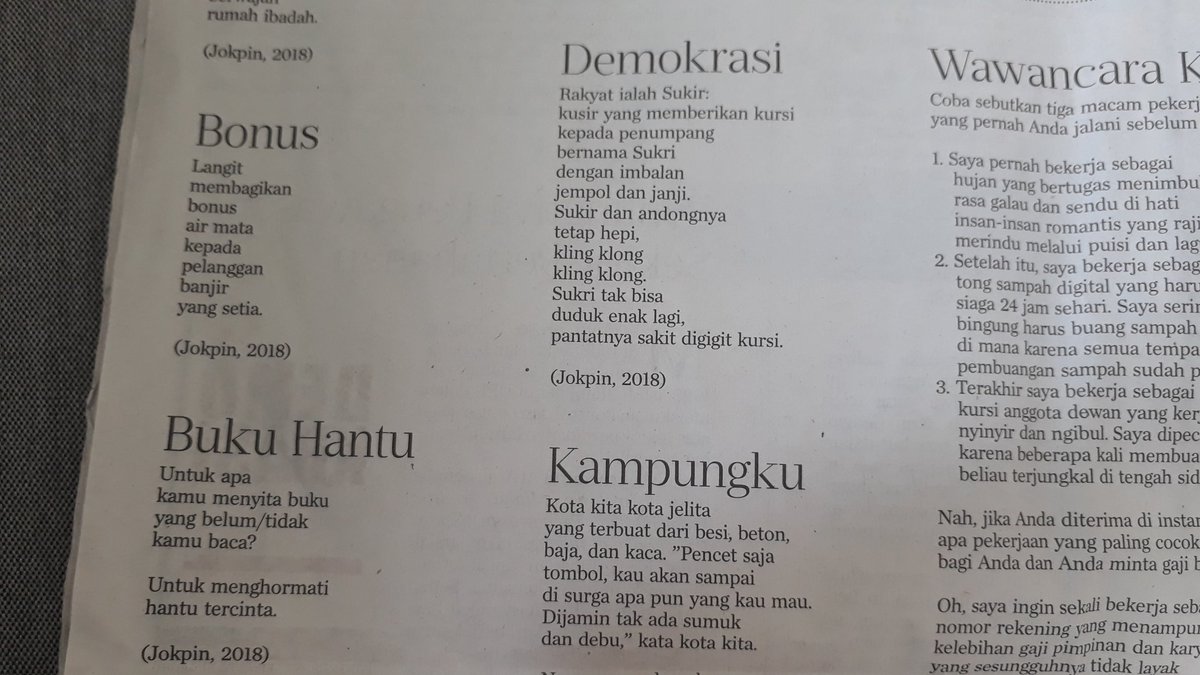 rumah ibadah.
(Jokpin, 2018)
Bonus
Langit
membagikan
bonus
air mata
kepada
pelanggan
banjir
yang setia.
(Jokpin, 2018)
Buku Hantu
Untuk apa
kamu menyita buku
yang belum/tidak
kamu baca?
Untuk menghormati
hantu tercinta.
(Jokpin, 2018)
Demokrasi
Rakyat ialah Sukir:
kusir yang memberikan kursi
kepada penumpang
bernama Sukri
dengan imbalan
jempol dan janji.
Sukir dan andongnya
tetap hepi,
kling klong
kling klong.
Sukri tak bisa
duduk enak lagi,
pantatnya sakit digigit kursi.
(Jokpin, 2018)
Kampungku
Kota kita kota jelita
yang terbuat dari besi, beton,
baja, dan kaca. ”Pencet saja
tombol, kau akan sampai
di surga apa pun yang kau mau.
Dijamin tak ada sumuk
dan debu,” kata kota kita.
Wawancara K
Coba sebutkan tiga macam pekerj
yang pernah Anda jalani sebelum
1. Saya pernah bekerja sebagai
hujan yang bertugas menimbul
rasa galau dan sendu di hati
insan-insan romantis yang raji
merindu melalui puisi dan lag
2. Setelah itu, saya bekerja sebag
tong sampah digital yang haru
siaga 24 jam sehari. Saya serin
bingung harus buang sampah
di mana karena semua tempa
pembuangan sampah sudah p
3. Terakhir saya bekerja sebagai
kursi anggota dewan yang kerj
nyinyir dan ngibul. Saya dipec
karena beberapa kali membua
beliau terjungkal di tengah sid
Nah, jika Anda diterima di instan
apa pekerjaan yang paling cocok
bagi Anda dan Anda minta gaji b
Oh, saya ingin sekali bekerja seba
nomor rekening yang menampun
kelebihan gaji pimpinan dan kary
yang sesungguhnya tidak layak